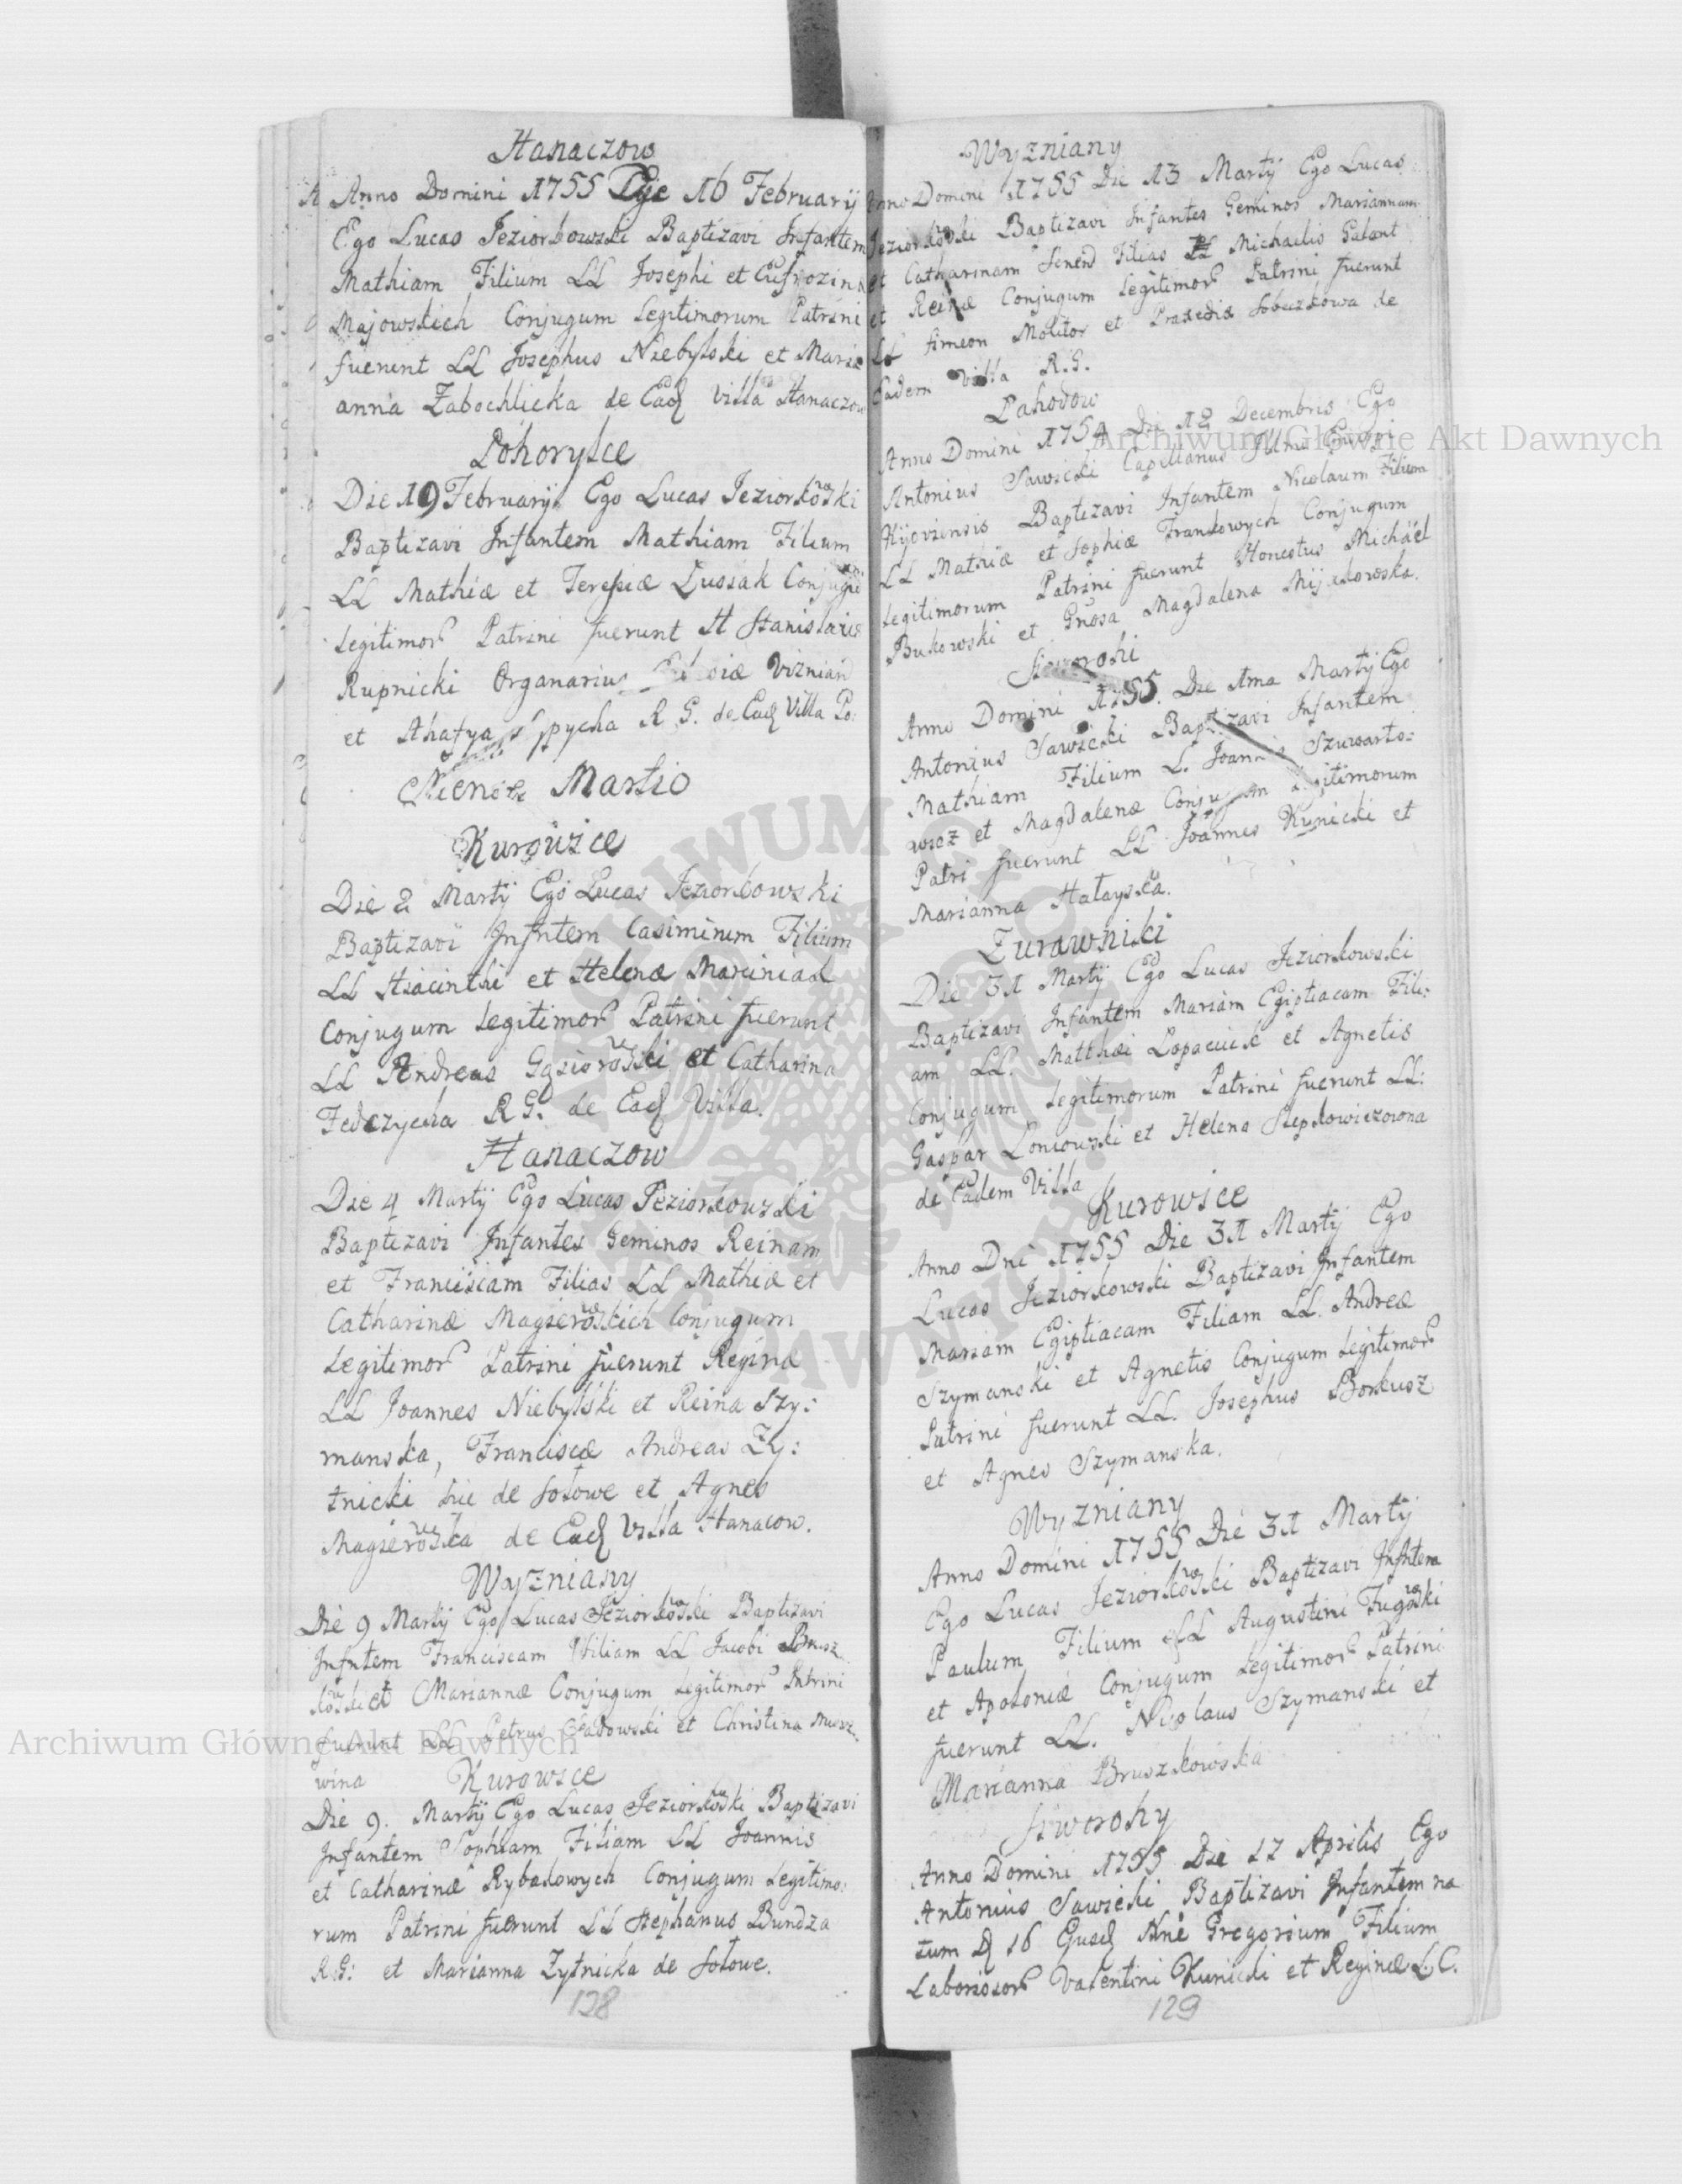 Hanaczow
A Anno Domini 1755 Die 16 Februarij
Ego Lucas Jeziorkowski Baptizavi Infantem
Mathiam Filium LL Josephi et Eufrozina
Majowskich Conjugum Legitimorum Patrini
fuerunt LL Josephus Niebylski et Mari
anna Zabochlicka de Ead Villa Hanaczow
Pohorylce
Die 19 Februarij Ego Lucas Jeziorkowski
Baptizavi Infantem Mathiam Filium
LL Mathiæ et Teresiæ Lussak Conjugum
Legitimor Patrini fuerunt H Stanislaus
Rupnicki Organarius Viznian
et Ahafya Spycha R G. de Ead Villa Po:
Mense Martio
Kurowice
Die 2 Martij Ego Lucas Jeziorkowski
Baptizavi Infntem Casimirum Filium
LL Hiacinthi et Helenæ Marciniak
Conjugum Legitimor Patrini fuerunt
LL Andreas Gąsiorowski et Catharina
Fedczycha R G. de Ead Villa.
Hanaczow
Die 4 Martij Ego Lucas Jeziorkowski
Baptizavi Infantes Geminos Reinam
et Franciscam Filias LL Mathiæ et
Catharinæ Magierowskich Conjugum
Legitimor Patrini fuerunt Reginæ
LL Joannes Niebylski et Reina Szy:
manska, Franciscæ Andreas Zy:
tnicki de Sołowe et Agnes
Magierowska de Ead Villa Hanacow.
Wyzniany
Die 9 Martij Ego Lucas Jeziorkowski Baptizavi
Infntem Franciscam Filiam LL Jacobi Brusz
kowski et Mariannæ Conjugum Legitimor Patrini
fuerunt LL Petrus et Christina
wina
Kurowice
Die 9. Martij Ego Lucas Jeziorkowski Baptizavi
Infantem Sophiam Filiam LL Joannis
et Catharinæ Rybakowych Conjugum Legitimo:
rum Patrini fuerunt LL Stephanus Bundza
R.G: et Marianna Zytnicka de Sołowe.
128
Wyzniany
Anno Domini 1755 Die 13 Martij Ego Lucas
Jeziorkowski Baptizavi Infantes Geminos Mariannam
et Catharinam Filias Michaelis Galant
et Reinæ Conjugum Legitimor Patrini fuerunt
LL Simeon Molitor et Praxedis Sobuzkowa de
Eadem Villa R.G.
Lahodow
Anno Domini 1754 Die 12 Decembris Ego
Antonius Sawicki Capellanus
Kijoviensis Baptizavi Infantem Nicolaum Filium
LL Mathiæ et Sophiæ Frankowych Conjugum
Legitimorum Patrini fuerunt Honestus Michael
Bukowski et Gnosa Magdalena Mijakowska.
Siworohi
Anno Domini 1755. Die 1ma Martij Ego
Antonius Sawicki Baptizavi Infantem
Mathiam Filium L. Joannis Szuwarto:
wicz et Magdalenæ Conjugum Legitimorum
Patri fuerunt LL Joannes Kunicki et
Marianna Hałayska.
Zurawniki
Die 31 Martij Ego Lucas Jeziorkowski
Baptizavi Infantem Mariam Egiptiacam Fili:
am LL. Matthæi Lopaciuk et Agnetis
Conjugum Legitimorum Patrini fuerunt LL:
Gaspar Loniowski et Helena Stepkowiczowna
de Eadem Villa
Kurowice
Anno Dni 1755 Die 31 Martij Ego
Lucas Jeziorkowski Baptizavi Infantem
Mariam Egiptiacam Filiam LL. Andreæ
Szymanski et Agnetis Conjugum Legitimor
Patrini fuerunt LL. Josephus Borkusz
et Agnes Szymanska.
Wyzniany
Anno Domini 1755 Die 31 Martij
Ego Lucas Jeziorkowski Baptizavi Infntem
Paulum Filium LL Augustini Fugowski
et Apoloniæ Conjugum Legitimor Patrini
fuerunt LL. Nicolaus Szymanski et
Marianna Bruszkowska
Siworohy
Anno Domini 1755 Die 17 Aprilis Ego
Antonius Sawicki Baptizavi Infantem na
tum D 16 Gregorium Filium
Laboriosor Valentini Kunicki et Reginæ L.C.
129
Archiwum Główne Akt Dawnych
Archiwum Główne Akt Dawnych